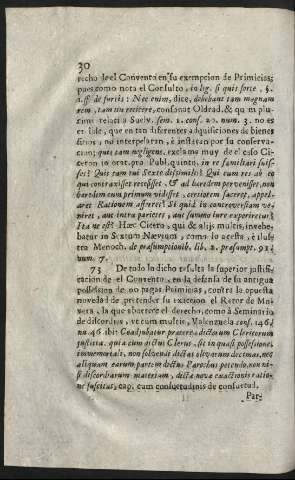 30
recho de el Convento en su exempcion de Primicias;
pues como nota el Consulto, in lig. si quis forte, §.
1. ff. de furtis: Nec enim, dice, debebant tam magnam
rem, tam un reticere, consonat Oldrad. & quam plu-
rimi relati a Suelv. sem. 1. cons. 20. num. 3. no es
creible, que en tan diferentes adquisiciones de bienes
sitios, no interpelaran, è instaran por su conserva-
cion; quis tam negligens, exclama muy de el caso Ci-
ceron in orat. pro Publ. quinto, in re familiari fuis-
set? Quis tam sui Sexte dissimilis? Qui cum res ab eo
qui contraxisset recessisset, & ad haredem pervenisset, non
haredem cum primum vidisset, certiorem faceret, appel-
aret Rationem afferret? Si quid in controversiam ve-
niret, aut intra parietes, aut summo iure experiretur?
Ita ne est? Hæc Cicero, qui & alijs multis, invehe-
batur in Sextum Nævium, como lo acesta, è ilus-
tra Menoch. de præsumptionib. lib. 2. præsumpt. 93.
num. 7.
73 De todo lo dicho resulta la superior justifi-
cacion de el Convento, en la defensa de su antigua
possession de no pagar Primicias, contra la prueba
novedad de pretender su exaccion el Retor de Mni-
vesra, la que aborrece el derecho, como à Seminario
de discordias, ut cum multis, Valenzuela cons. 146.
nu. 46. ibi: Coadjubatur præterea dictorum Clericorum
justitia, quia cum dictus Clerus, sit in quasi possessione,
immemoriali, non solvendi dictas olivarum decimas, nec
aliquam earum partem dictus Parochus petendo, non ni-
si discordiarum materiam, dicta nova exactionis ratio-
ne suscitat, cap. cum consuetudinis de consuetud.
Par-